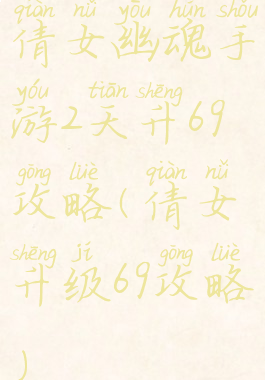 qiàn nǚ yōu hún shǒu
倩女幽魂手
yóu tiān shēng
游2天升69
gōng lüè qiàn nǚ
攻略(倩女
shēng jí gōng lüè
升级69攻略
)